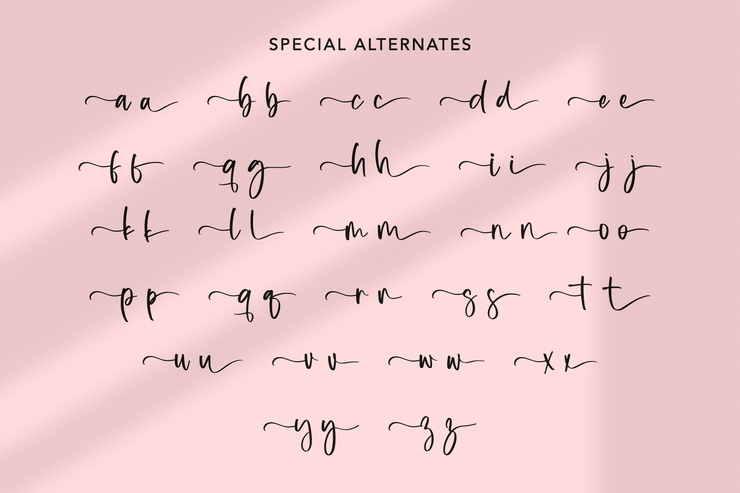 SPECIAL ALTERNATES
aa bb cc dd ee
ff qg hh ii jj
kk ll mm nn oo
pp qq rr ss tt
uu vv ww xx
yy zz